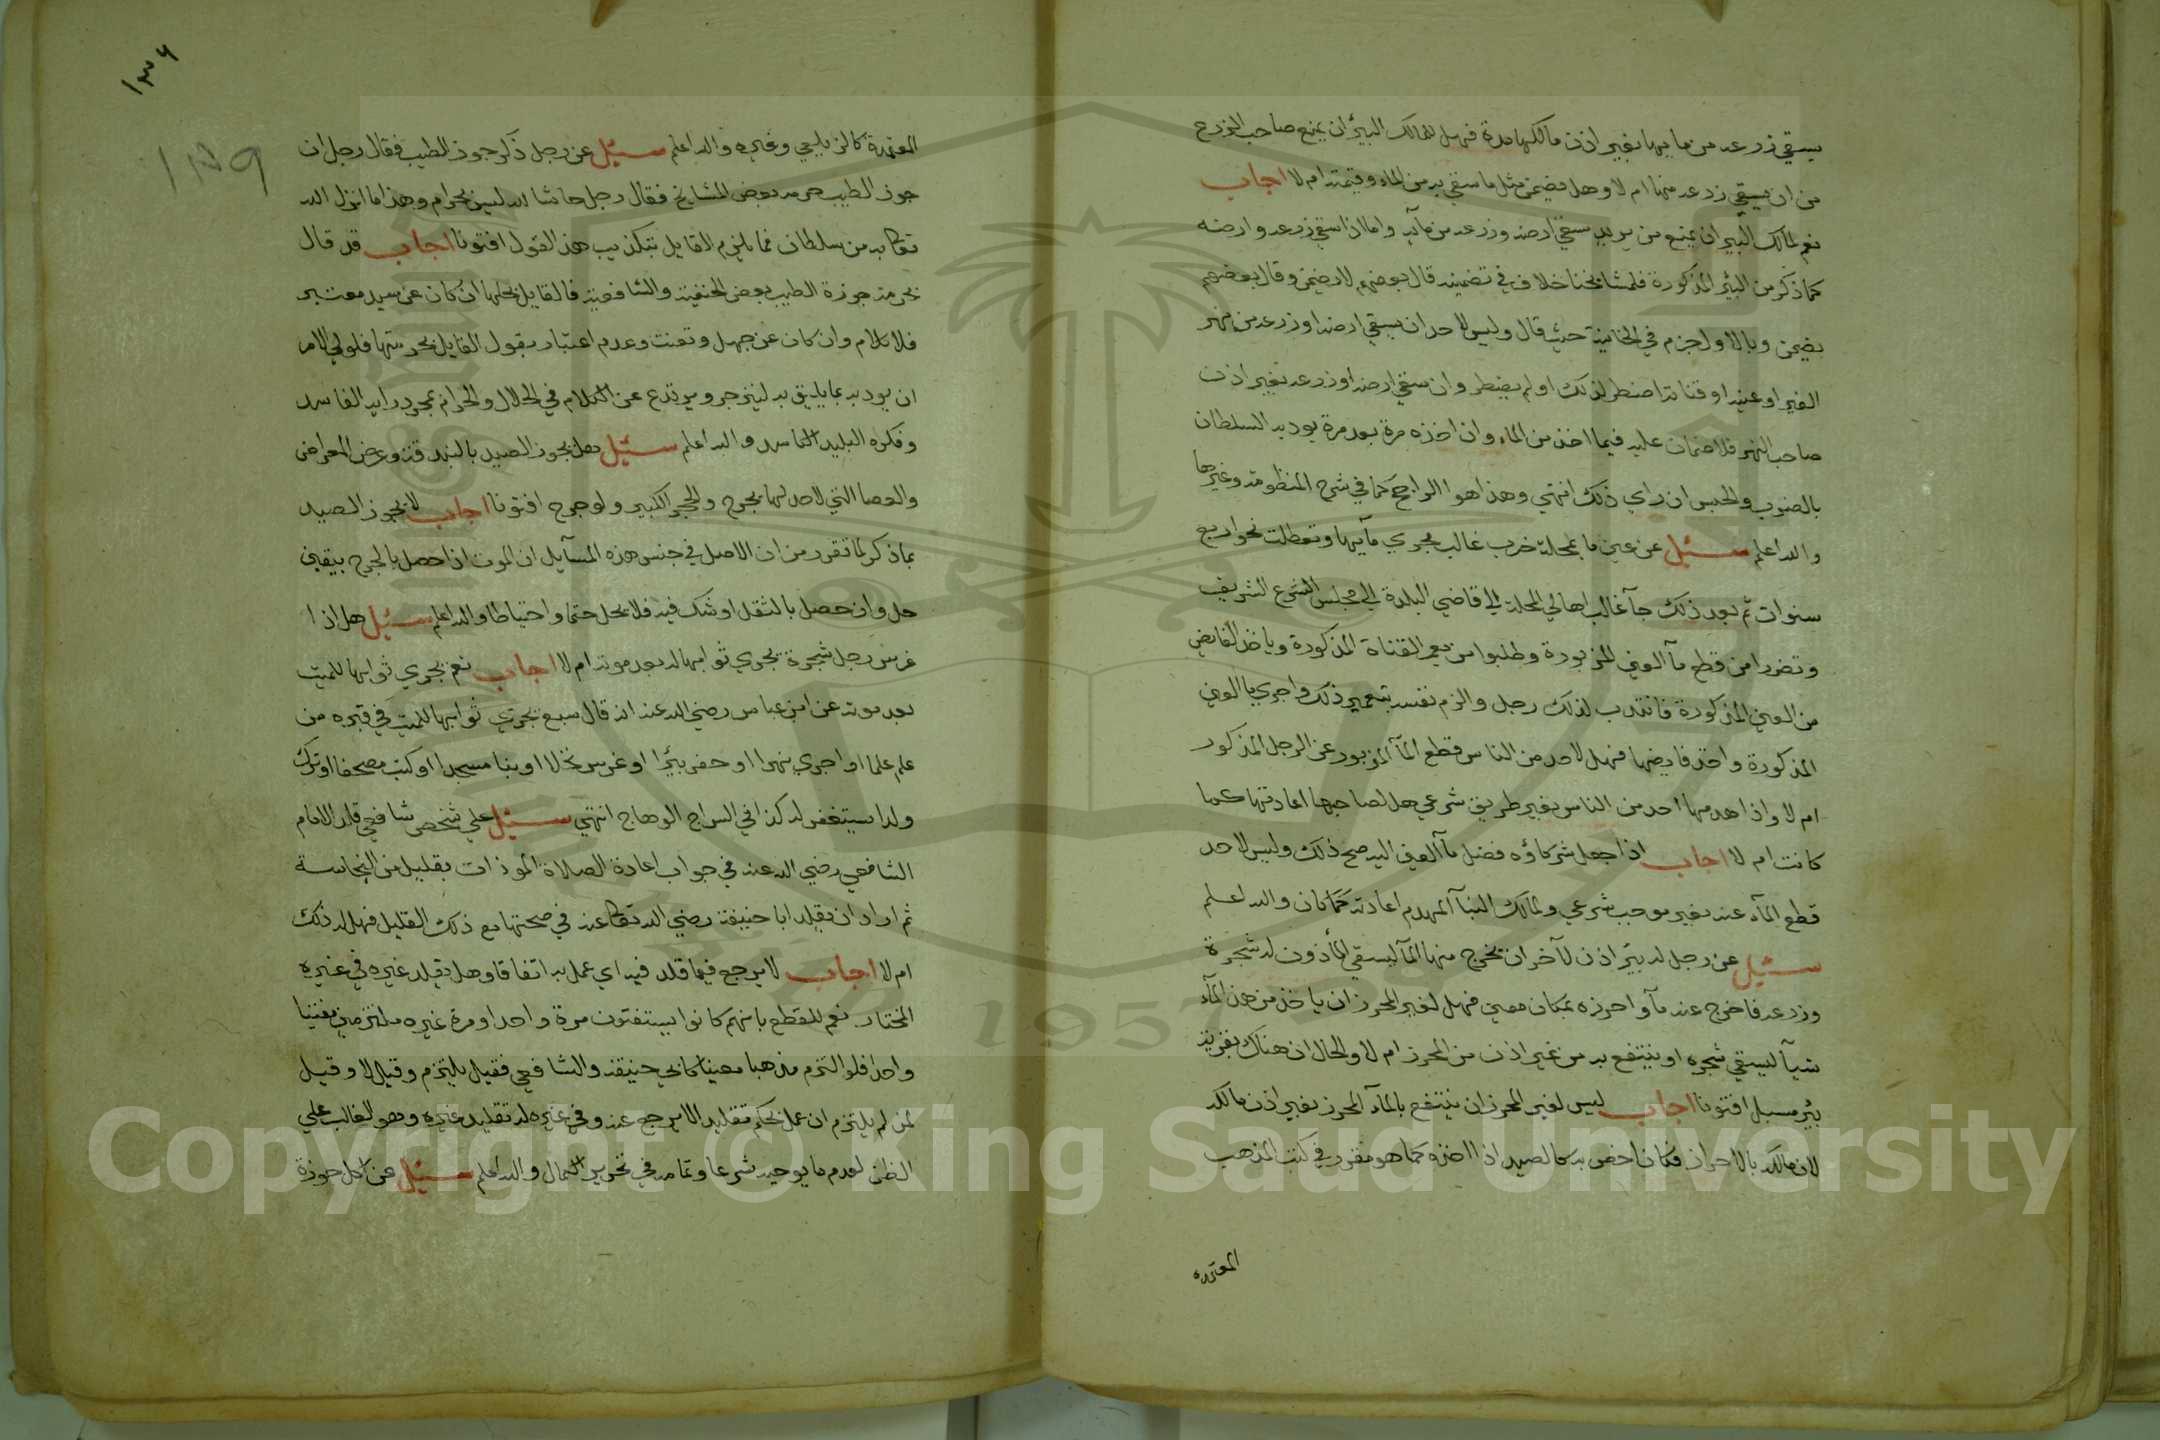 يسقي زرعه من مايها بغير اذن مالكها مدة فهل لمالك البير ان يمنع صاحب الزرع
من ان يسقي زرعه منها ام لا وهل يضمن مثل ما سقي به من الماء وقيمته ام لا اجاب
نعم لمالك البير ان يمنع من يريد سقي ارضه وزرعه من مآيه واما اذا سقي زرعه وارضه
كما ذكر من البئر المذكورة فلمشايخنا خلاف في تضمينه قال بعضهم لا يضمن وقال بعضهم
يضمن وبالاول جزم في الخانية حيث قال وليس لاحد ان يسقي ارضه او زرعه من نهر
الغير او عينه او قناته اضطر لذلك او لم يضطر وان سقي ارضه او زرعه بغير اذن
صاحب النهر فلا ضمان عليه فيما اخذ من الماء وان اخذه مرة بعد مرة يودبه السلطان
بالضرب والحبس ان راي ذلك انتهي وهذا هو الراجح كما في شرح المنظومة وغيرها
والله اعلم سئيل عن عين ما بمحلة خرب غالب مجري مآيها وتعطلت نحو اربع
سنوات ثم بعد ذلك جآ غالب اهالي المحلة الي قاضي البلدة الي مجلس الشرع الشريف
وتضررا من قطع مآ العين المزبورة وطلبوا من يعمر القناة المذكورة وياخذ الفايض
من العين المذكورة فانتدب لذلك رجل والزم نفسه بتعمير ذلك واجري ما العين
المذكورة واخذ فايضها فهل لاحد من الناس قطع المآ المزبور عن الرجل المذكور
ام لا واذا هدمها احد من الناس بغير طريق شرعي هل لصاحبها اعادتها كما
كانت ام لا اجاب اذا جعل شركاؤه فضل مآ العين اليه صح ذلك وليس لاحد
قطع المآء عنه بغير موجب شرعي ولمالك البنآ المهدم اعادته كما كان والله اعلم
سئيل عن رجل له بئر اذن لآخر ان يخرج منها المآ ليسقي المأذون له شجرة
وزرعه فاخرج عنه مآ واحرزه بمكان معين فهل لغير المحرز ان ياخذ من هذا المآء
شيآ ليسقي شجره او ينتفع به من غير اذن من المحرز ام لا والحال ان هناك بقربة
بئر مسبل افتونا اجاب ليس لغير المحرز ان ينتفع بالمآء المحرز بغير اذن مالكه
لانه مالكه بالاحراز فكان احق به كالصيد اذا اخذه كما هو مقرر في كتب المذهب
المعتمدة
١٣٦
١٣٩
المعتمدة كالزيلعي وغيره والله اعلم سئيل عن رجل ذكر جوز الطيب فقال رجل ان
جوز الطيب حرمه بعض المشايخ فقال رجل حاشا لله ليس بحرام وهذا ما انزل الله
تعا به من سلطان فما يلزم القايل بتكذيب هذا القول افتونا اجاب قد قال
بحرمة جوزة الطيب بعض الحنفية والشافعية فالقايل بحلها ان كان عن سند معتبر
فلا كلام وان كان عن جهل وتعنت وعدم اعتبار بقول القايل بحرمتها فلولي الامر
ان يودبه بما يليق به لينزجر ويرتدع عن الكلام في الحلال والحرام بمجرد رايه الفاسد
وفكره البليد الكاسد والله اعلم سئيل هل يجوز الصيد بالبندقة وعرض المعراض
والعصا التي لا حد لها يجرح والحجر الكبير ولو جرح افتونا اجاب لا يجوز الصيد
بما ذكر لما تقرر من ان الاصل في جنس هذه المسآيل ان الموت اذا حصل بالجرح بيقين
حل وان حصل بالثقل او شك فيه فلا يحل حتما واحتياطا والله اعلم سئيل هل اذا
غرس رجل شجرة يجري ثوابها له بعد موته ام لا اجاب نعم يجري ثوابها للميت
بعد موته عن ابن عباس رضي الله عنه انه قال سبع يجري ثوابها للميت في قبره من
علم علما او اجري نهرا او حفر بيرا او غرس نخلا او بنا مسجدا او كتب مصحفا او ترك
ولدا يستغفر له كذا في السراج الوهاج انتهي سئيل علي شخص شافعي قلد الامام
الشافعي رضي الله عنه في جواب اعادة الصلاة الموذات بقليل من النجاسة
ثم اراد ان يقلد ابا حنيفة رضي الله تعا عنه في صحتها مع ذلك القليل فهل له ذلك
ام لا اجاب لا يرجع فيما قلد فيه اي عمل به اتفاقا وهل يقلد غيره في غيره
المختار نعم للقطع بانهم كانوا يستفتون مرة واحدا ومرة غيره ملتزمين مفتيا
واحدا فلو التزم مذهبا معينا كابي حنيفة والشافعي فقيل يلتزم وقيل لا وقيل
لمن لم يلتزم ان عمل بحكم تقليد الا يرجع عنه وفي غيره له تقليد غيره وهو الغالب علي
الظن لعدم ما يوجبه شرعا وتمامه في تحرير الكمال والله اعلم سئيل عن اكل جوزة
Copyright © King Saud University
1957